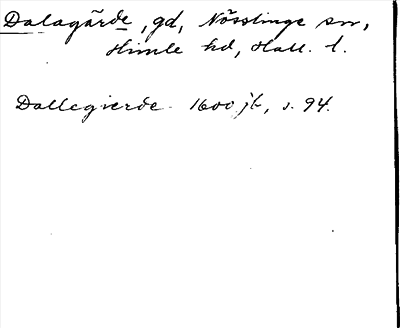 Dalagärde, gd, Nösslinge sn,
Himle hd, Hall. l.
Dallegierde. 1600 jb, s. 94.